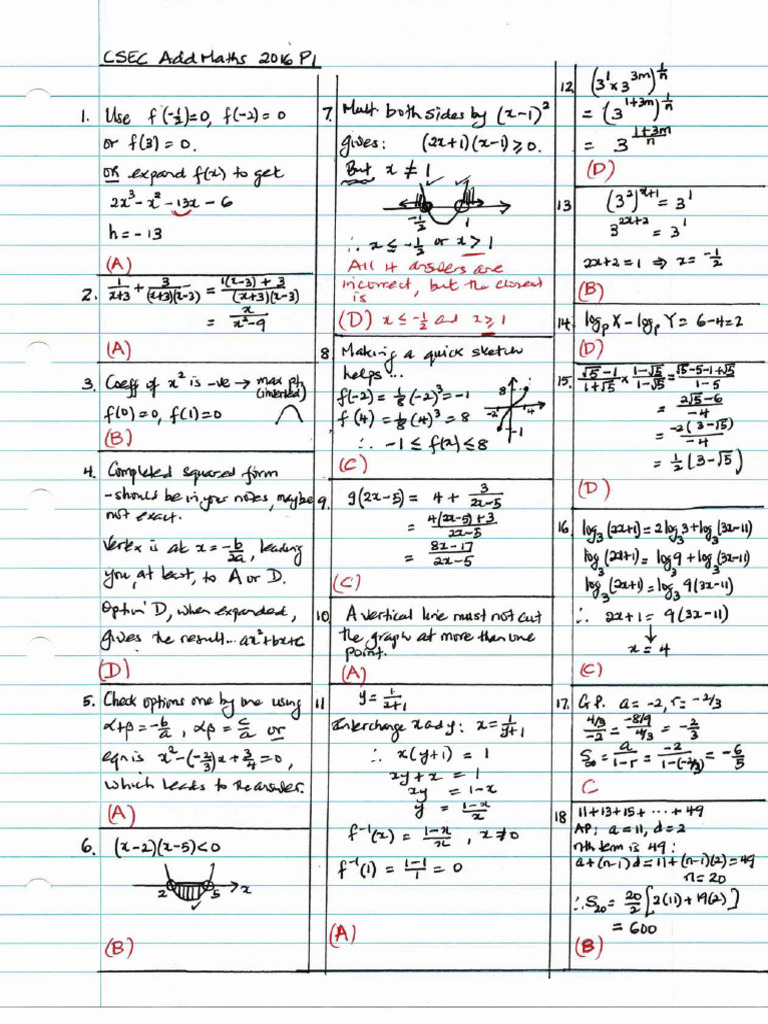 CSEC Add Maths 2016 P1
1. Use f(-½)=0, f(-2)=0
or f(3) = 0.
OR expand f(x) to get
2x³ - x² - 13x - 6
h = -13
(A)
2. 1/(x+3) + 3/((x+3)(x-3)) = (1(x-3) + 3)/((x+3)(x-3))
= x/(x²-9)
(A)
3. Coeff of x² is -ve → max pt. (inverted)
f(0)=0, f(1)=0
(B)
4. Completed squared form
- should be in your notes, maybe
not exact.
Vertex is at x = -b/2a, leading
you, at least, to A or D.
Option D, when expanded,
gives the result... ax²+bx+c
(D)
5. Check options one by one using
α+β = -b/a, αβ = c/a or
eqn is x² - (-2/3)x + 3/4 = 0,
which leads to the answer.
(A)
6. (x-2)(x-5) < 0
2 5 x
(B)
7. Mult both sides by (x-1)²
gives: (2x+1)(x-1) ≥ 0.
But x ≠ 1
-½ 1
∴ x ≤ -½ or x > 1
All 4 answers are
incorrect, but the closest
is
(D) x ≤ -½ and x ≥ 1
8. Making a quick sketch
helps...
f(-2) = ⅛(-2)³ = -1
f(4) = ⅛(4)³ = 8
8 -2 4 -1
∴ -1 ≤ f(x) ≤ 8
(C)
9. g(2x-5) = 4 + 3/(2x-5)
= (4(2x-5)+3)/(2x-5)
= (8x-17)/(2x-5)
(C)
10. A vertical line must not cut
the graph at more than one
point.
(A)
11 y = 1/(x+1)
Interchange x and y: x = 1/(y+1)
∴ x(y+1) = 1
xy + x = 1
xy = 1-x
y = (1-x)/x
f⁻¹(x) = (1-x)/x, x ≠ 0
f⁻¹(1) = (1-1)/1 = 0
(A)
12. (3¹ × 3^(3m))^(1/n)
= (3^(1+3m))^(1/n)
= 3^((1+3m)/n)
(D)
13 (3²)^(x+1) = 3¹
3^(2x+2) = 3¹
2x+2 = 1 ⇒ x = -½
(B)
14 logₚX - logₚY = 6-4 = 2
(D)
15. (√5-1)/(1+√5) × (1-√5)/(1-√5) = (√5-5-1+√5)/(1-5)
= (2√5-6)/-4
= -2(3-√5)/-4
= ½(3-√5)
(D)
16 log₃(2x+1) = 2log₃3 + log₃(3x-11)
log₃(2x+1) = log₃9 + log₃(3x-11)
log₃(2x+1) = log₃ 9(3x-11)
∴ 2x+1 = 9(3x-11)
↓
x = 4
(C)
17. G.P. a = -2, r = -2/3
(4/3)/-2 = (-8/9)/(4/3) = -2/3
S∞ = a/(1-r) = -2/(1-(-2/3)) = -6/5
C
18 11+13+15+ ... + 49
AP: a = 11, d = 2
nth term is 49:
a+(n-1)d = 11+(n-1)(2) = 49
n = 20
∴ S₂₀ = 20/2 [2(11) + 19(2)]
= 600
(B)